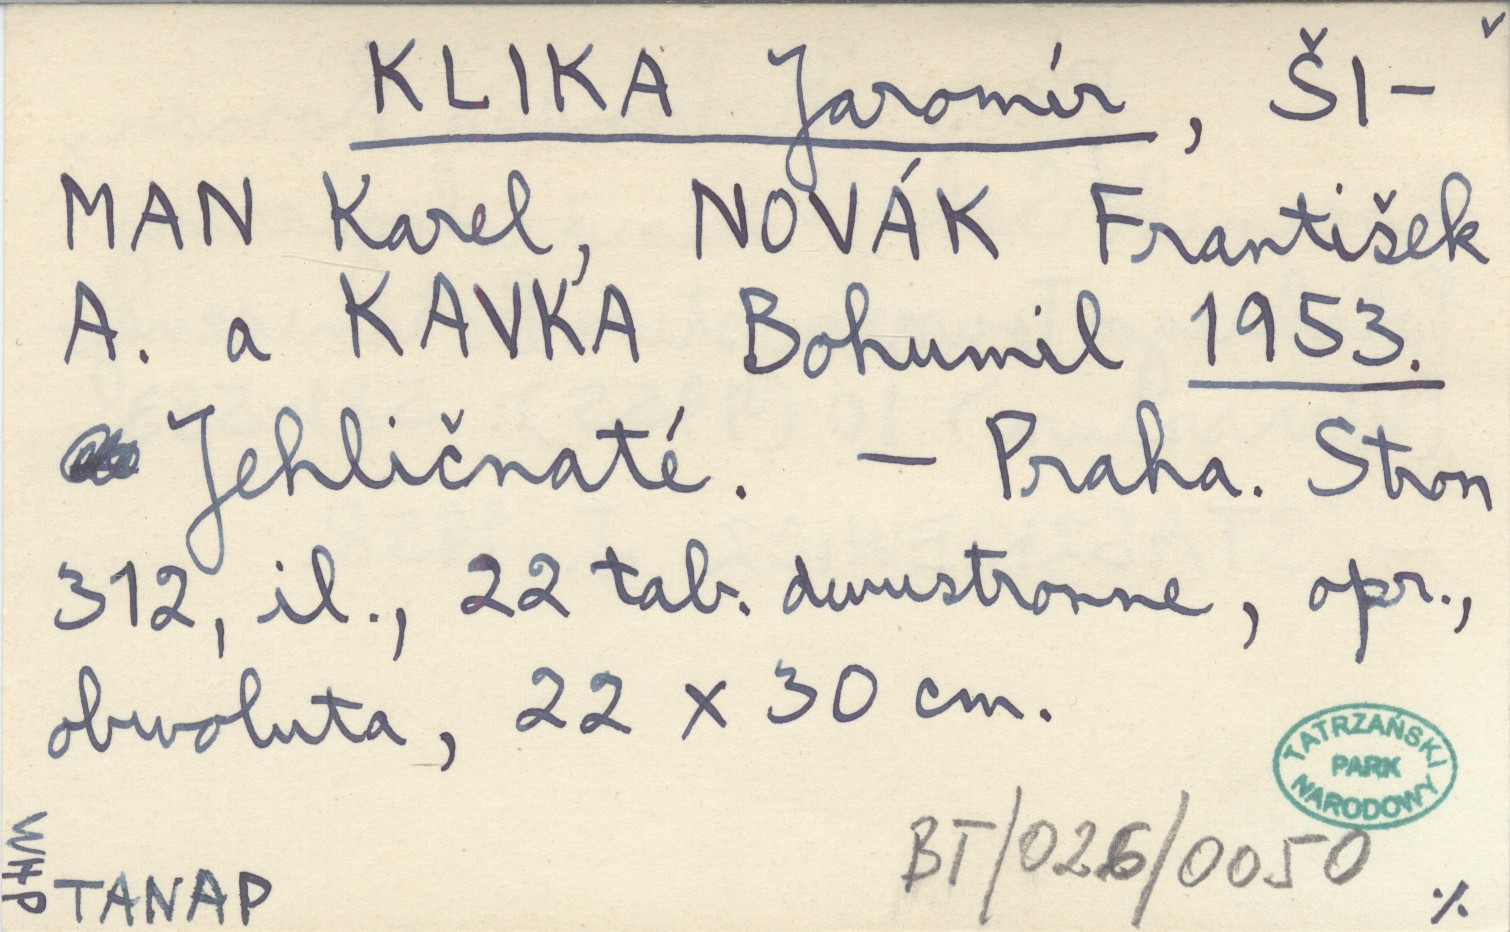 KLIKA Jaromír, ŠI-
MAN Karel, NOVÁK František
A. a KAVKA Bohumil 1953.
Jehličnaté. – Praha. Stron
312, il., 22 tab. dwustronne, opr.,
obwoluta, 22 x 30 cm.
TATRZAŃSKI
PARK
NARODOWY
BT/026/0050
WHP
TANAP
./.